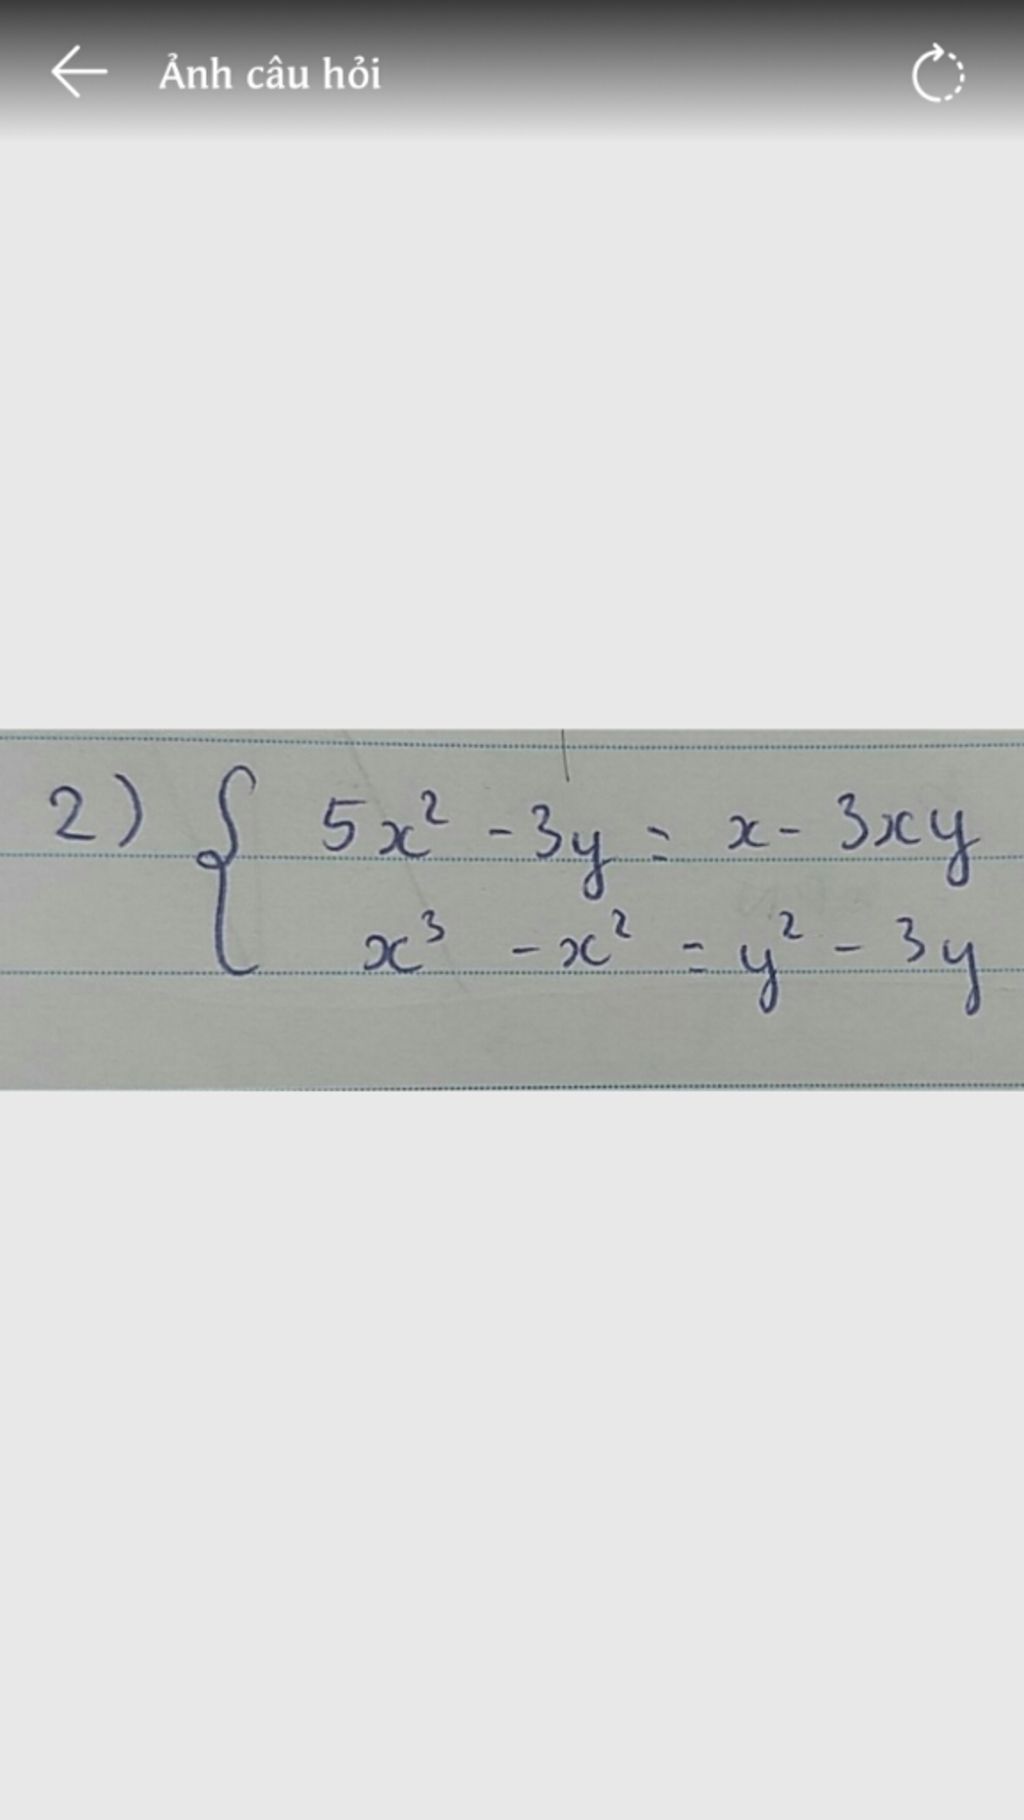 Ảnh câu hỏi
2) { 5x² - 3y = x - 3xy
x³ - x² = y² - 3y